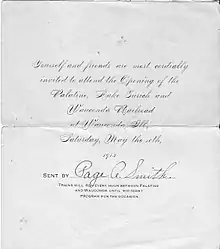 Yourself and friends are most cordially
invited to attend the Opening of the
Palatine, Lake Zurich and
Wauconda Railroad
at Wauconda, Ill.
Saturday, May the 18th,
1912
SENT BY Page A. Smith
TRAINS WILL RUN EVERY HOUR BETWEEN PALATINE
AND WAUCONDA UNTIL MIDNIGHT
PROGRAM FOR THE OCCASION